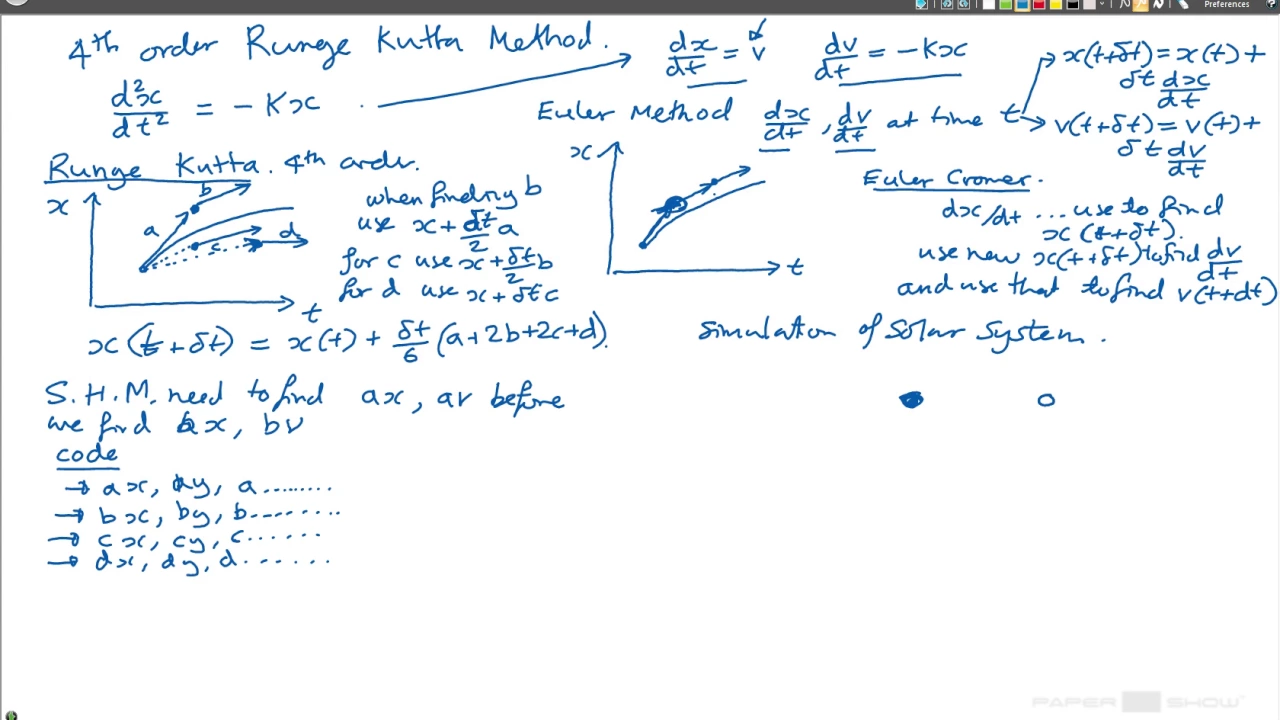 Preferences
4th order Runge Kutta Method.
d²x/dt² = - Kx
dx/dt = v
dv/dt = - Kx
Euler Method dx/dt, dv/dt at time t
x(t+δt) = x(t) + δt dx/dt
v(t+δt) = v(t) + δt dv/dt
Runge Kutta. 4th order.
x
a
b
c
d
t
when finding b
use x + δt/2 a
for c use x + δt/2 b
for d use x + δt c
x
t
Euler Cromer.
dx/dt ... use to find
x(t+δt).
use new x(t+δt) to find dv/dt
and use that to find v(t+dt)
x(t+δt) = x(t) + δt/6 (a+2b+2c+d).
Simulation of Solar System.
S.H.M. need to find ax, av before
we find bx, bv
code
→ ax, ay, a.........
→ bx, by, b........
→ cx, cy, c......
→ dx, dy, d......
PAPER SHOW